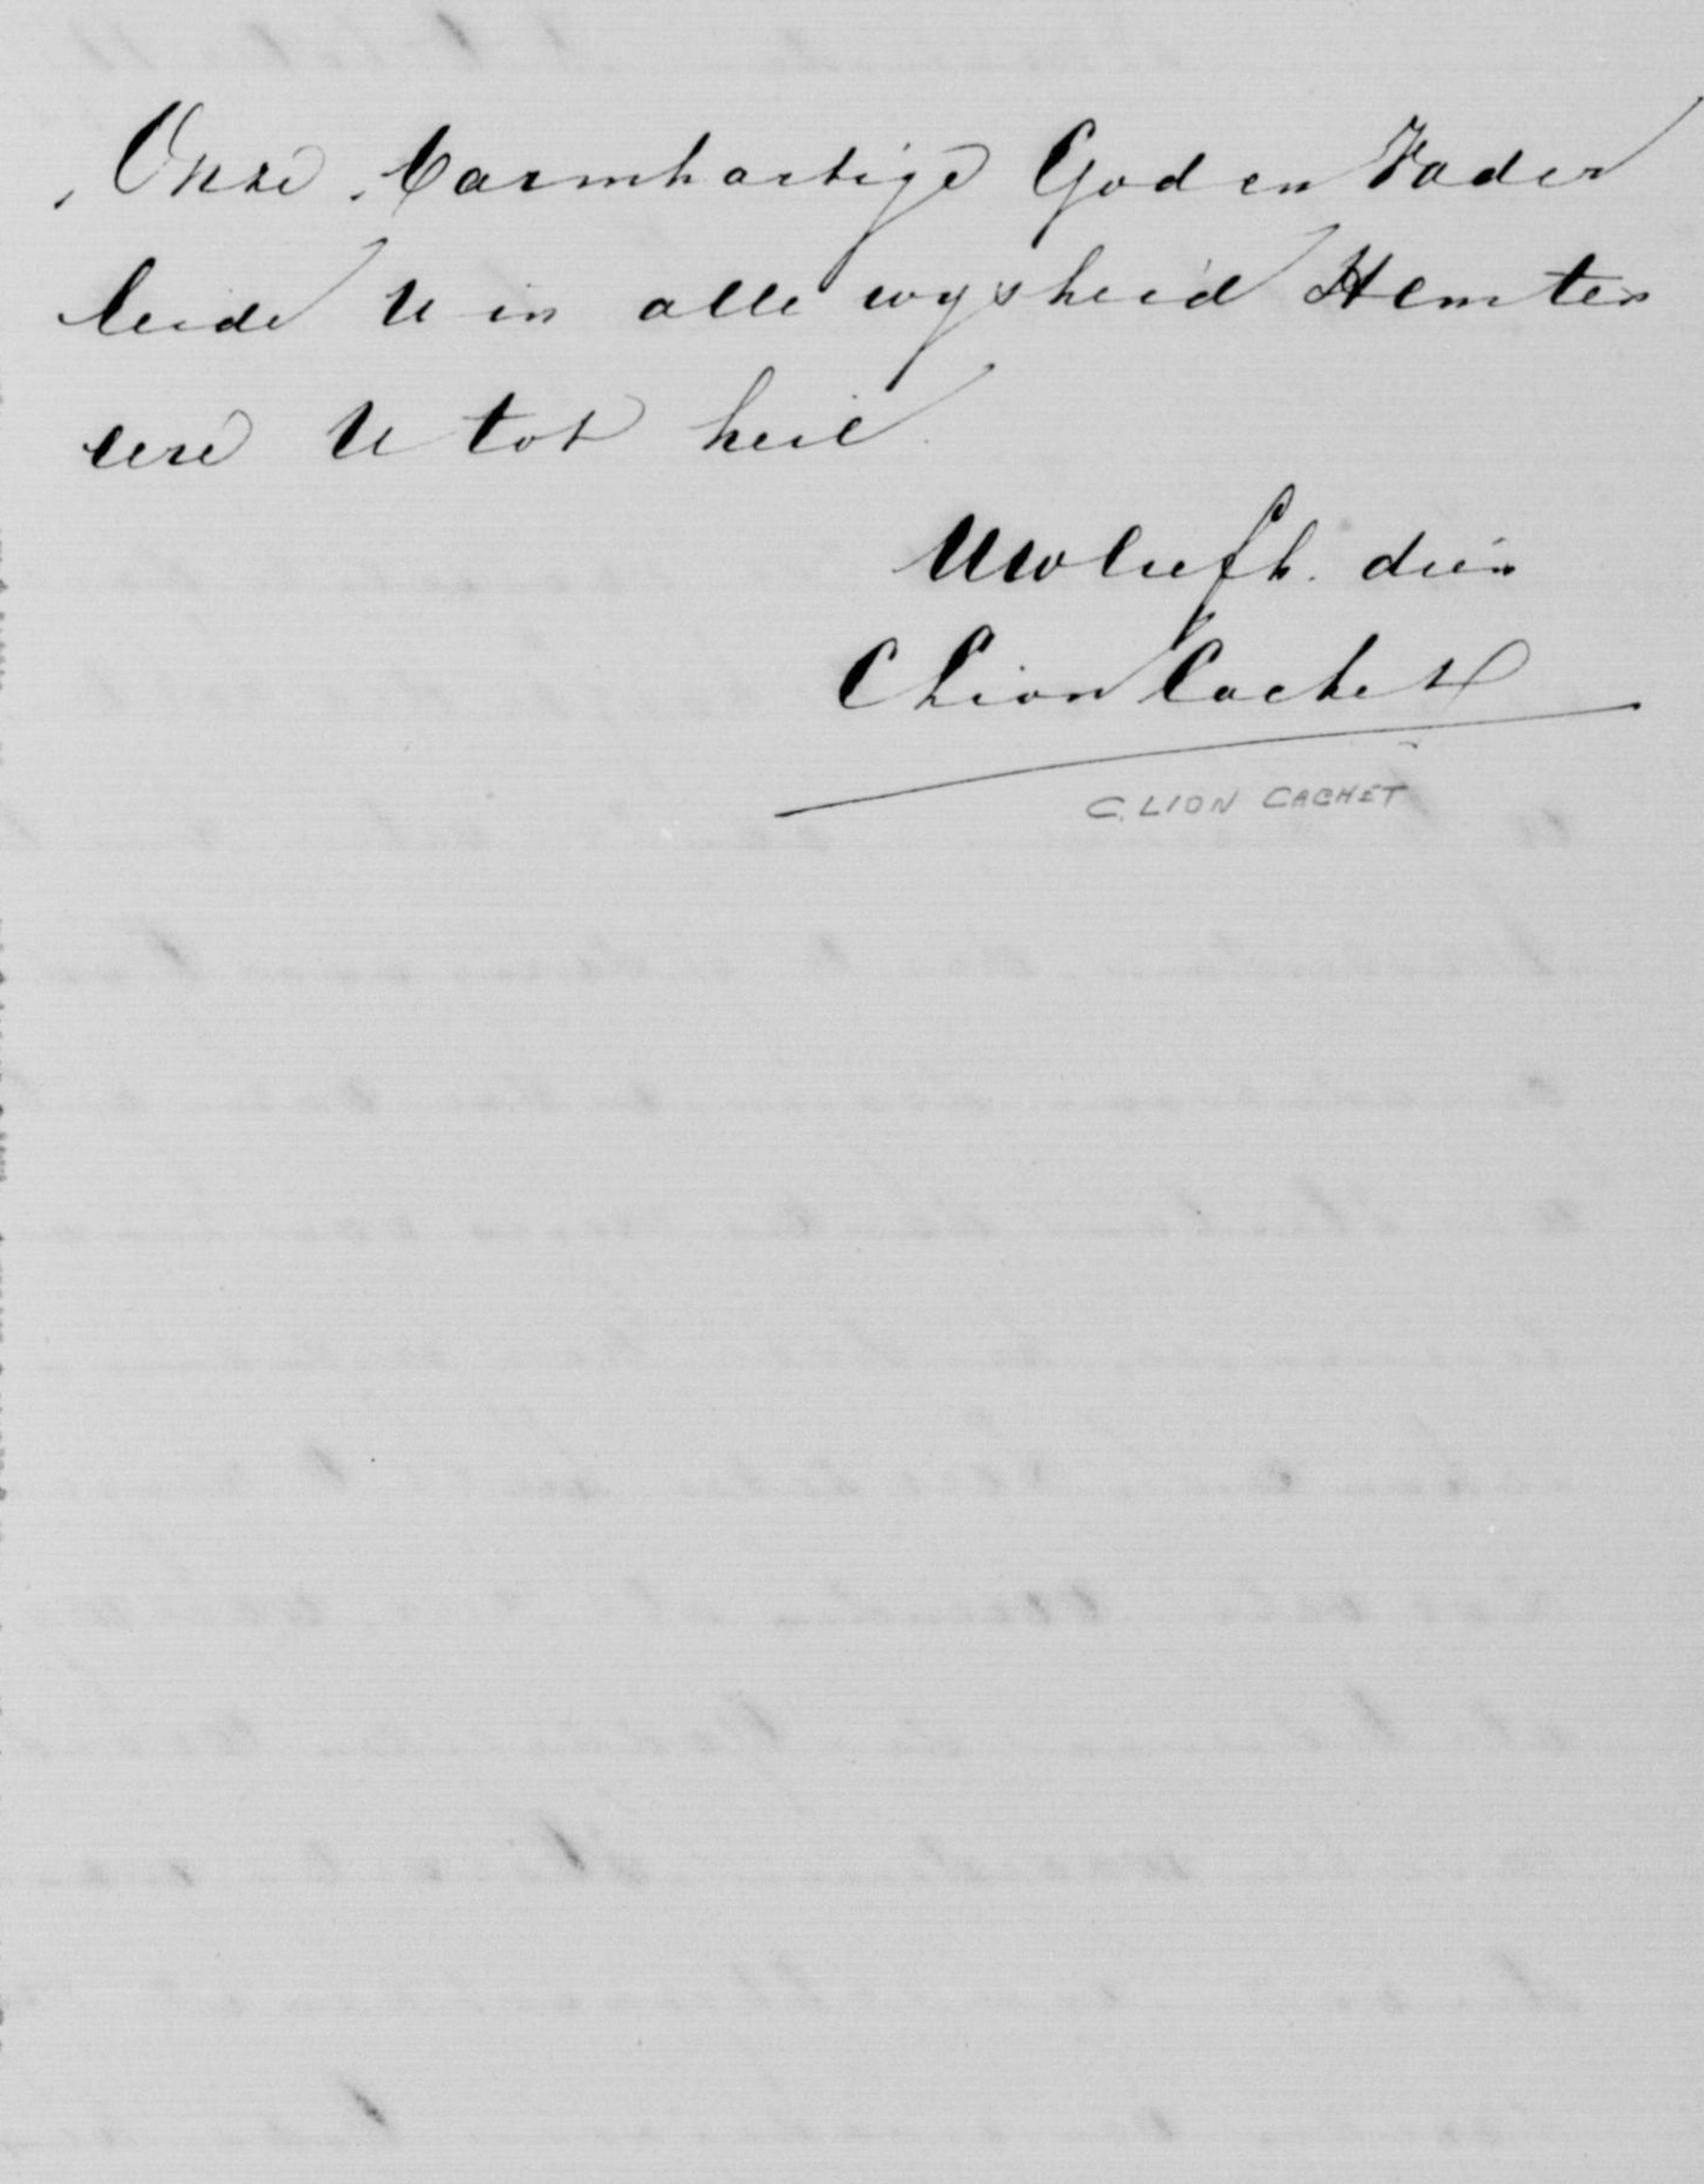 Onze barmhartige God en Vader
leide U in alle wysheid Hem ter
eere U tot heil.
Uw liefh. dien
C Lion Cachet
C. LION CACHET